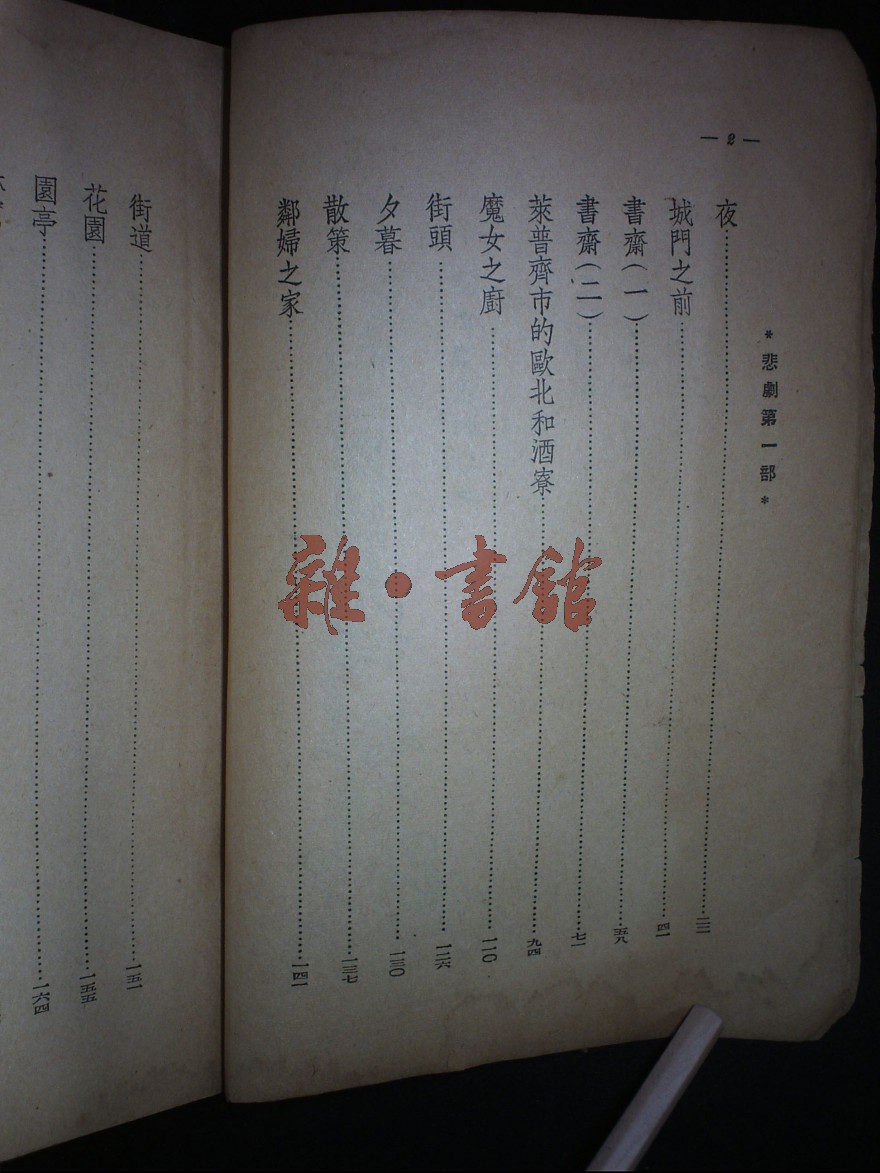 — 2 —
*悲劇第一部*
夜……二二
城門之前……四一
書齋(一)……五八
書齋(二)……七一
萊普齊市的歐北和酒寮……九四
魔女之廚……一一〇
街頭……一二六
夕暮……一三〇
散策……一三七
鄰婦之家……一四一
街道……一五一
花園……一五五
園亭……一六四
雜·書館